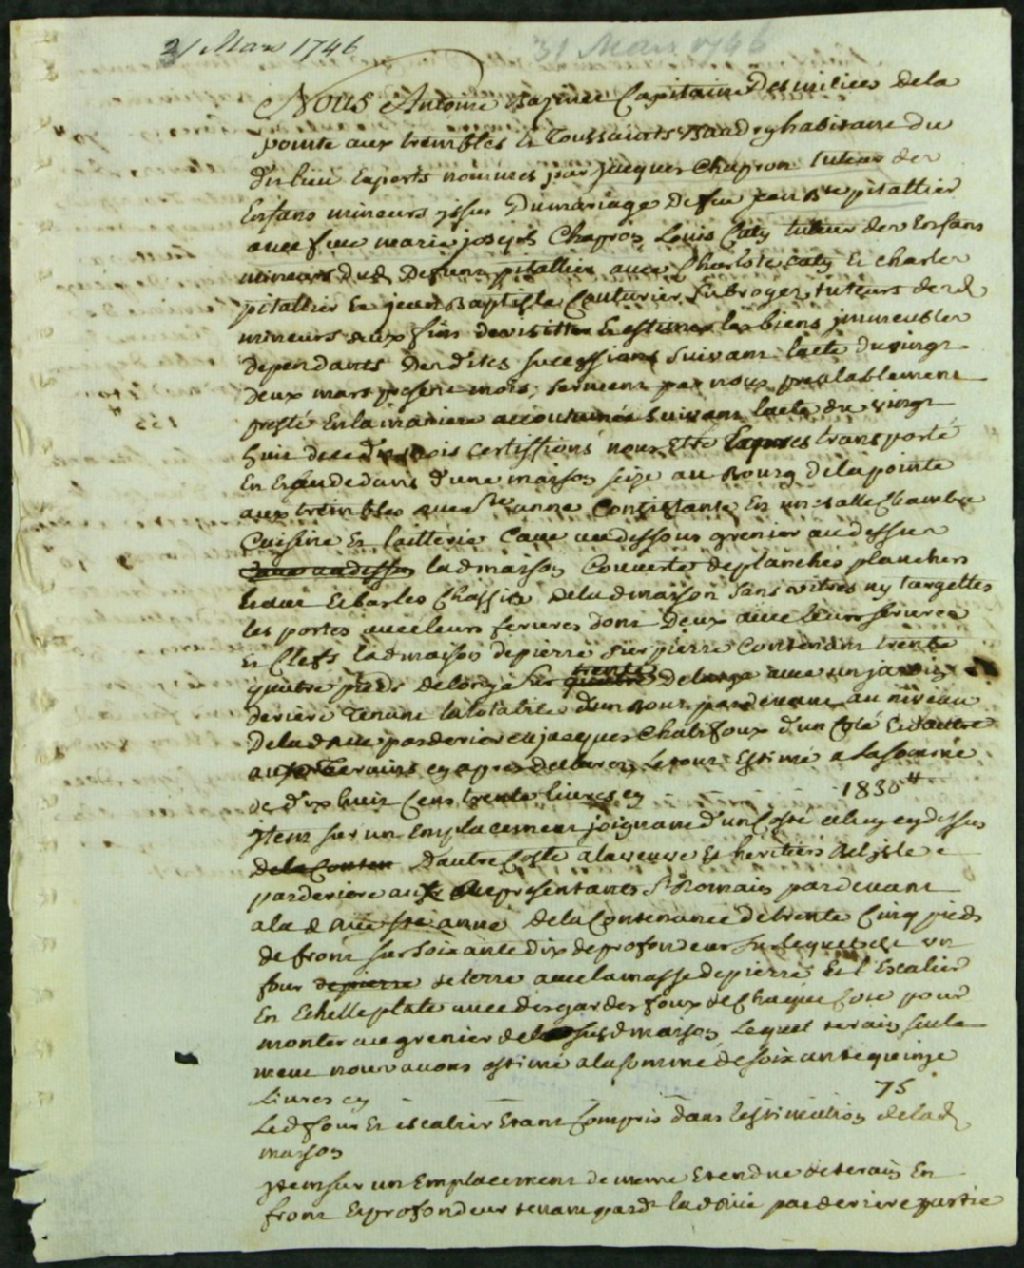 31 Mars 1746
31 Mars 1746
Nous Antoine Capitaine Des milices dela
pointe aux trembles et Toussaints Baudry habitans du
d. lieu Experts nommés par jacques Chapron tuteur des
Enfans mineurs issus Dumariage de feu jean Bte pitallier
avec feue marie joseph Chapron Louis Caty tuteur des Enfans
mineurs dud. Defunt pitallier avec Charlote Caty et charles
pitallier et jean Baptiste Couturier subroges tuteurs desd.
mineurs aux fins de visitter et estimer les biens immeubles
dependants Des dites sucessions suivant lacte du vingt
deux mars present mois, serment par nous prealablement
presté En la maniere accoutumée suivant lacte du vingt
huit de ce d. mois certiffions nous Etre transporté
En Et au dedans d'une maison seize au Bourg dela pointe
aux trembles rue Ste anne Consistante En une salle Chambre
Cuisine Et laitterie Cave au dessous grenier au dessus
cave au dessous lad maison Couverte de planches planchers
haut Et bas les Chassis de lad maison sans vitres ny targettes
les portes avec leurs ferures dont Deux avec leurs serures
Et Clefs lad maison de pierre sur pierre Contenant trente
quatre pieds de long sur trente de large avec un jardin
deriere Tenant la totalité d'un Bout par devant au niveau
De lad rue par deriere a jacques Chalifoux d'un Côté Et d'autre
aux Terrains cy apres declarez Le tout Estimé a la somme
de dix huit Cens trente livres cy - - - 1830 ₶
Item sur un Emplacement joignant d'un Costé celuy cy dessus
de la Conten D'autre Coste a la veuve Et heritiers Belisle
par deriere aux Representants St Romain par devant
a la d Rue Ste anne De la Contenance de trente Cinq pieds
de front sur soixante dix de profondeur sur lequel un
four de pierre de terre avec la masse de pierre Et l'Escalier
En Echelle plate avec des gardes foux de Chaque Coté pour
monter au grenier de la susd maison Lequel terain seule
ment nous avons estimé a la somme de soixante quinze
Livres cy - - - 75
Led four Et escalier Etant Compris dans l'estimation de lad
maison
Item sur un Emplacement de meme Etendue de terain En
front Et profondeur tenant pard. lad Rue par deriere partie